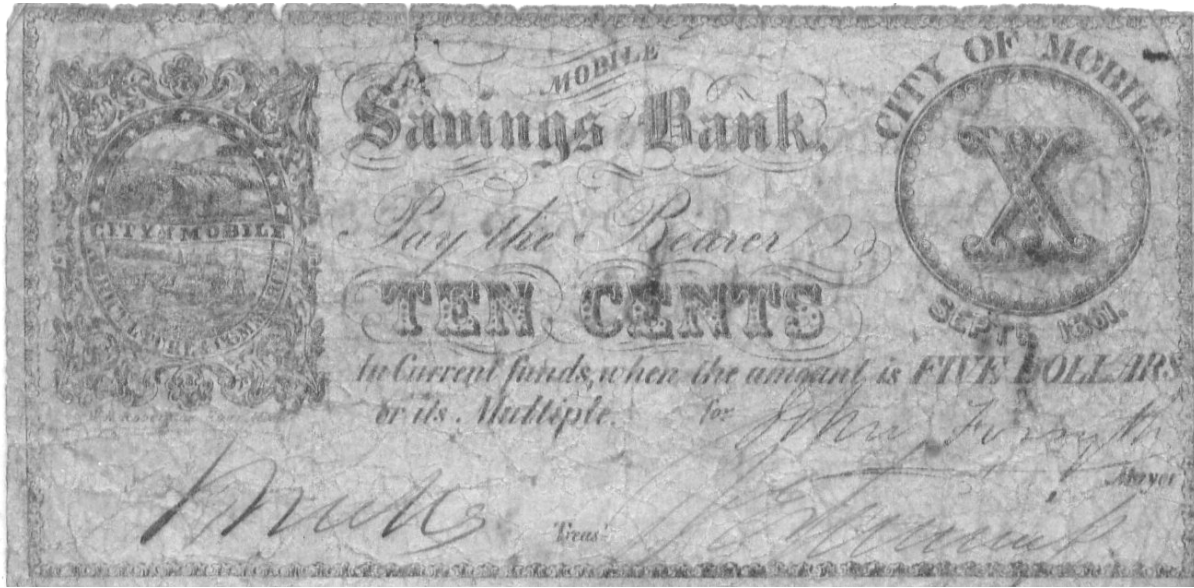 MOBILE
Savings Bank.
CITY OF MOBILE
X
SEPT. 1861.
CITY OF MOBILE
Pay the Bearer
TEN CENTS
In Current funds, when the amount is FIVE DOLLARS
or its Multiple. for John Forsyth
Mayor
Treasr.